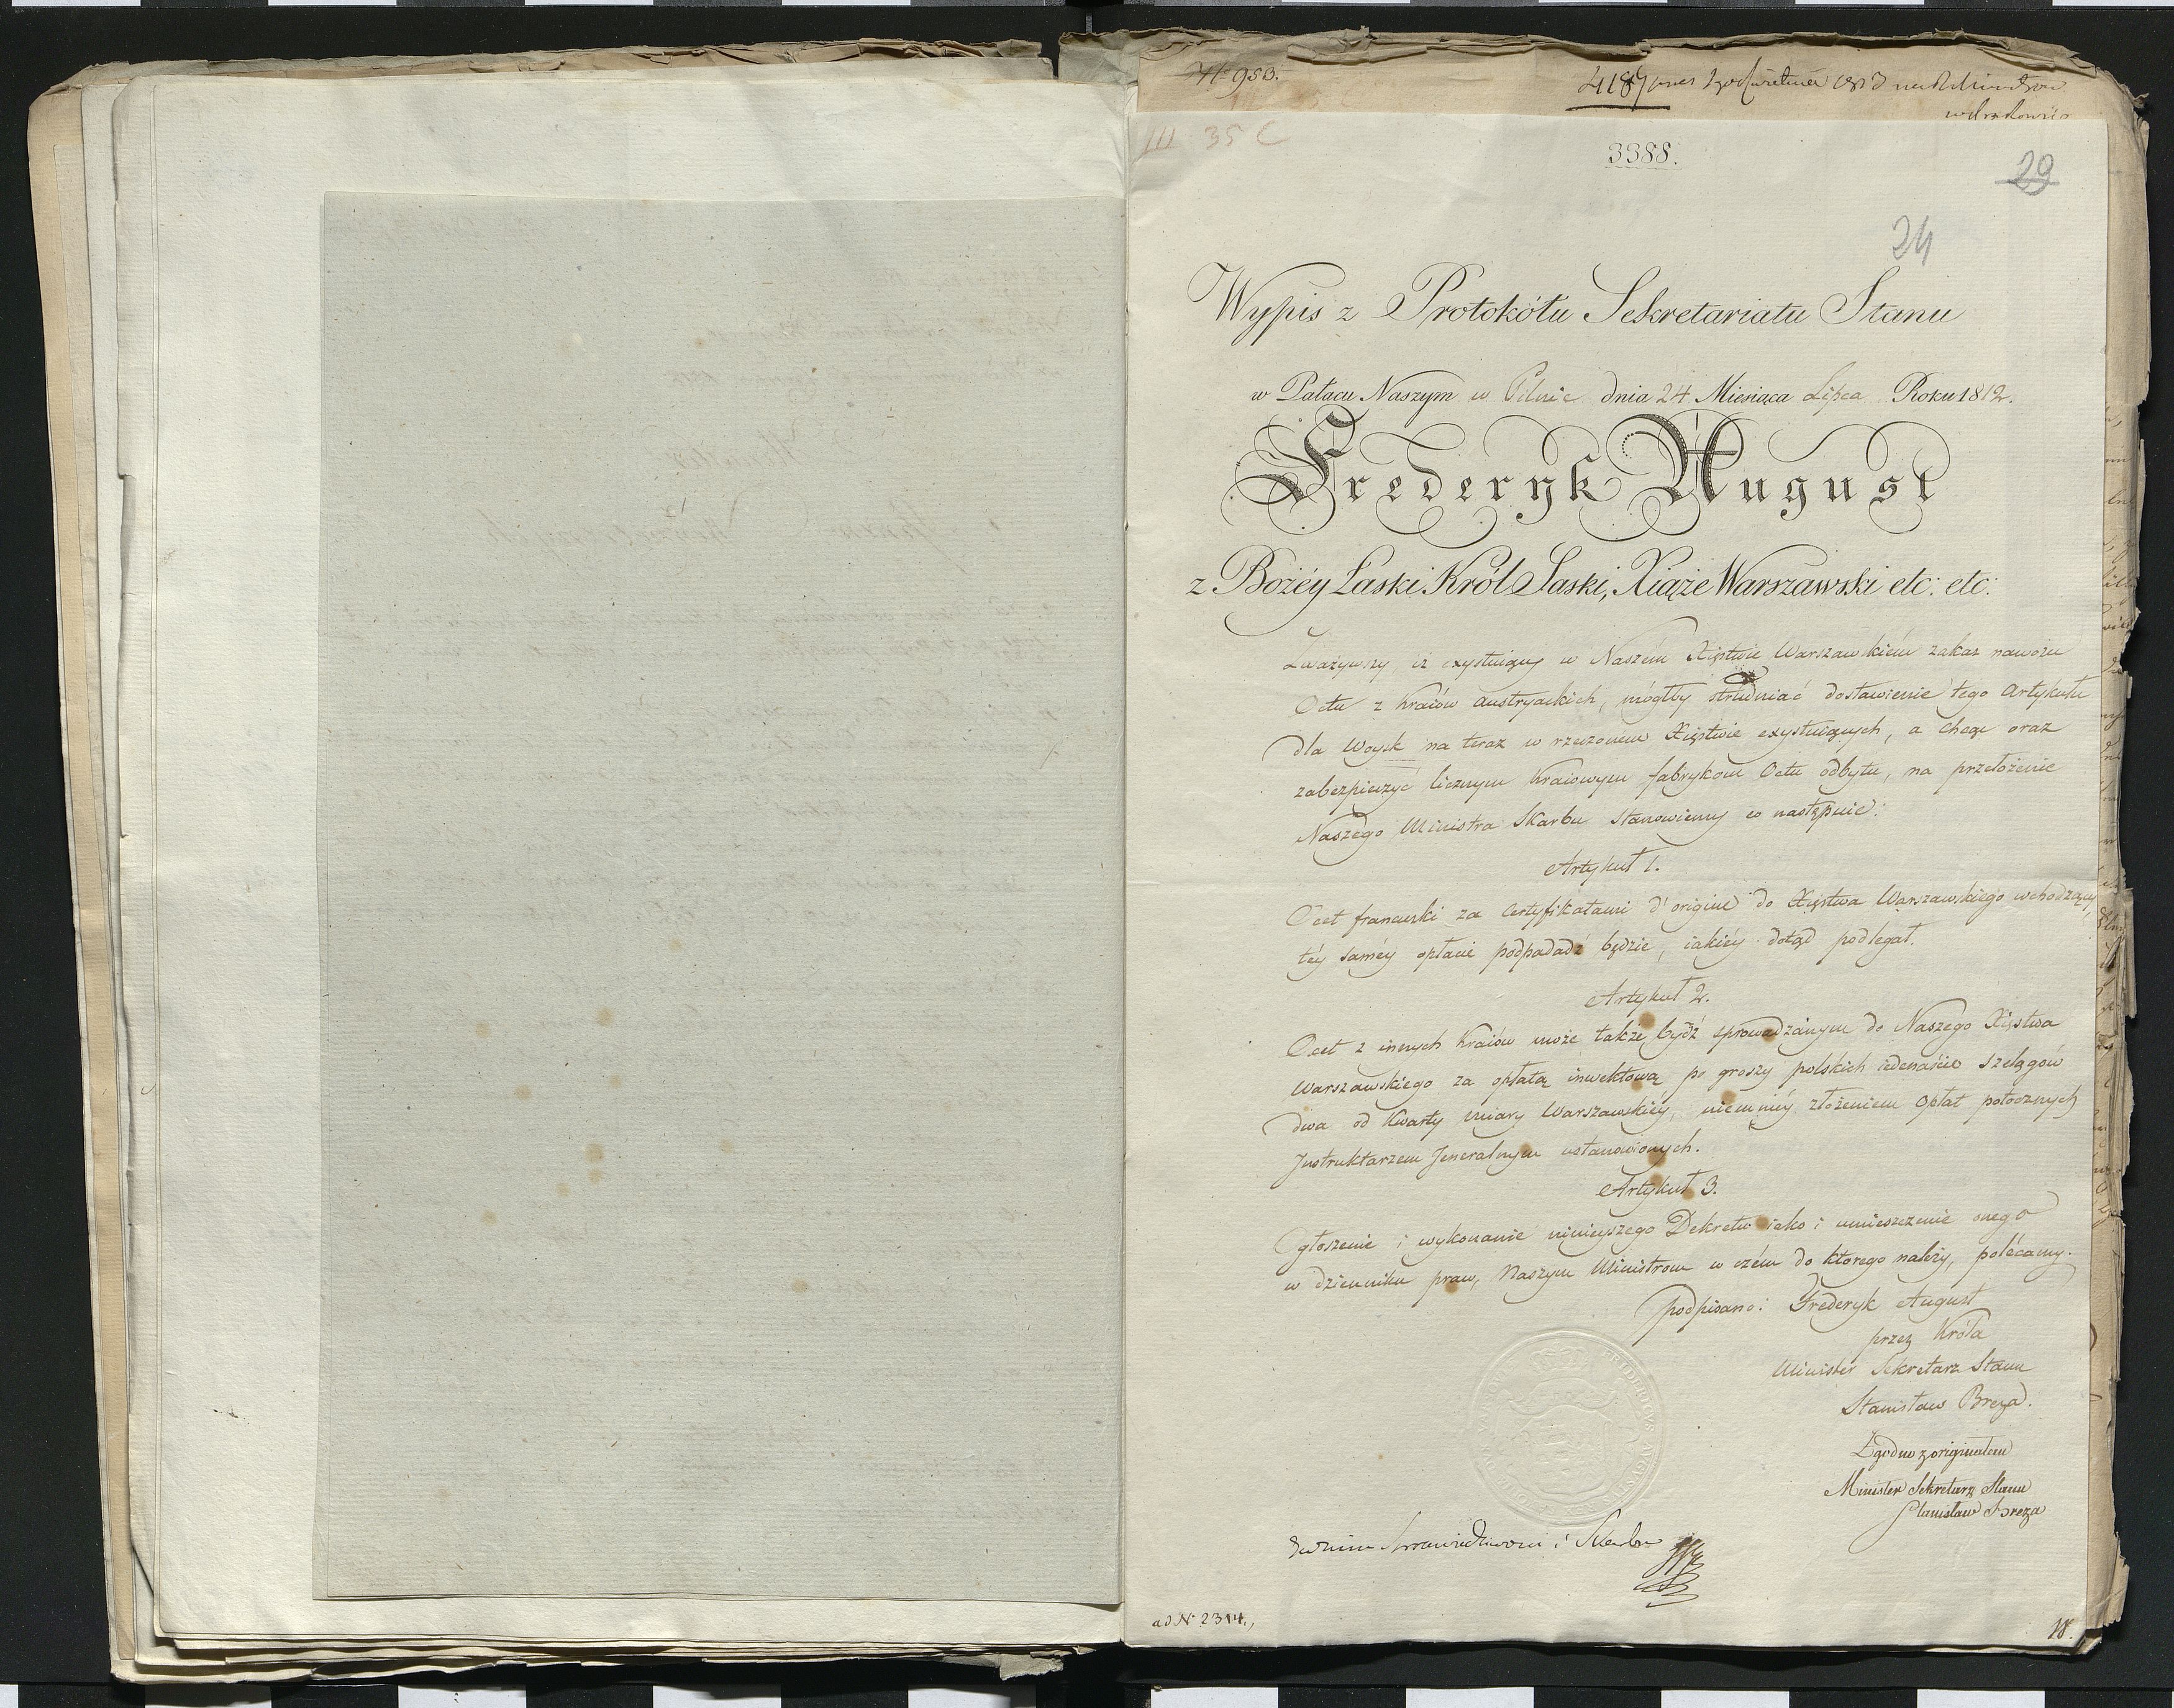 N 953.
4189
III 35 C
3388.
29
24
Wypis z Protokółu Sekretariatu Stanu
w Pałacu Naszym w Pilnic dnia 24 Miesiąca Lipca Roku 1812.
Frederyk August
z Bożéy Łaski Król Saski, Xiąże Warszawski etc: etc:
Zważywszy iż exystuiący w Naszém Xięstwie Warszawskiém zakaz nawozu
Octu z Kraiów Austryackich, mógłby utrudniać dostawienie tego Artykułu
dla Woysk na teraz w rzeczonem Xięstwie exystuiących, a chcąc oraz
zabezpieczyć licznym Kraiowym fabrykom Octu odbytu, na przełożenie
Naszego Ministra Skarbu stanowiemy co następuie:
Artykuł 1.
Ocet francuski za Certyfikatami d'origine do Xięstwa Warszawskiego wchodzący,
téy saméy opłacie podpadadź będzie, iakiéy dotąd podlegał.
Artykuł 2.
Ocet z innych Kraiów może także bydź sprowadzanym do Naszego Xięstwa
Warszawskiego za opłatą inwektową po groszy polskich iedenaście szelągów
dwa od Kwarty miary Warszawskiéy, niemniéy złożeniem Opłat potocznych
Instruktarzem Jeneralnym ustanowionych.
Artykuł 3.
Ogłoszenie i wykonanie ninieyszego Dekretu iako i umieszczenie onego
w dzienniku praw, Naszym Ministrom w czém do ktorego należy, polécamy.
podpisano: Frederyk August
przez Króla
Minister Sekretarz Stanu
Stanisław Breza.
Zgodno z originałem
Minister Sekretarz Stanu
Stanisław Breza
Sprawiedliwosci i Skarbu
ad N. 2314.,
18.